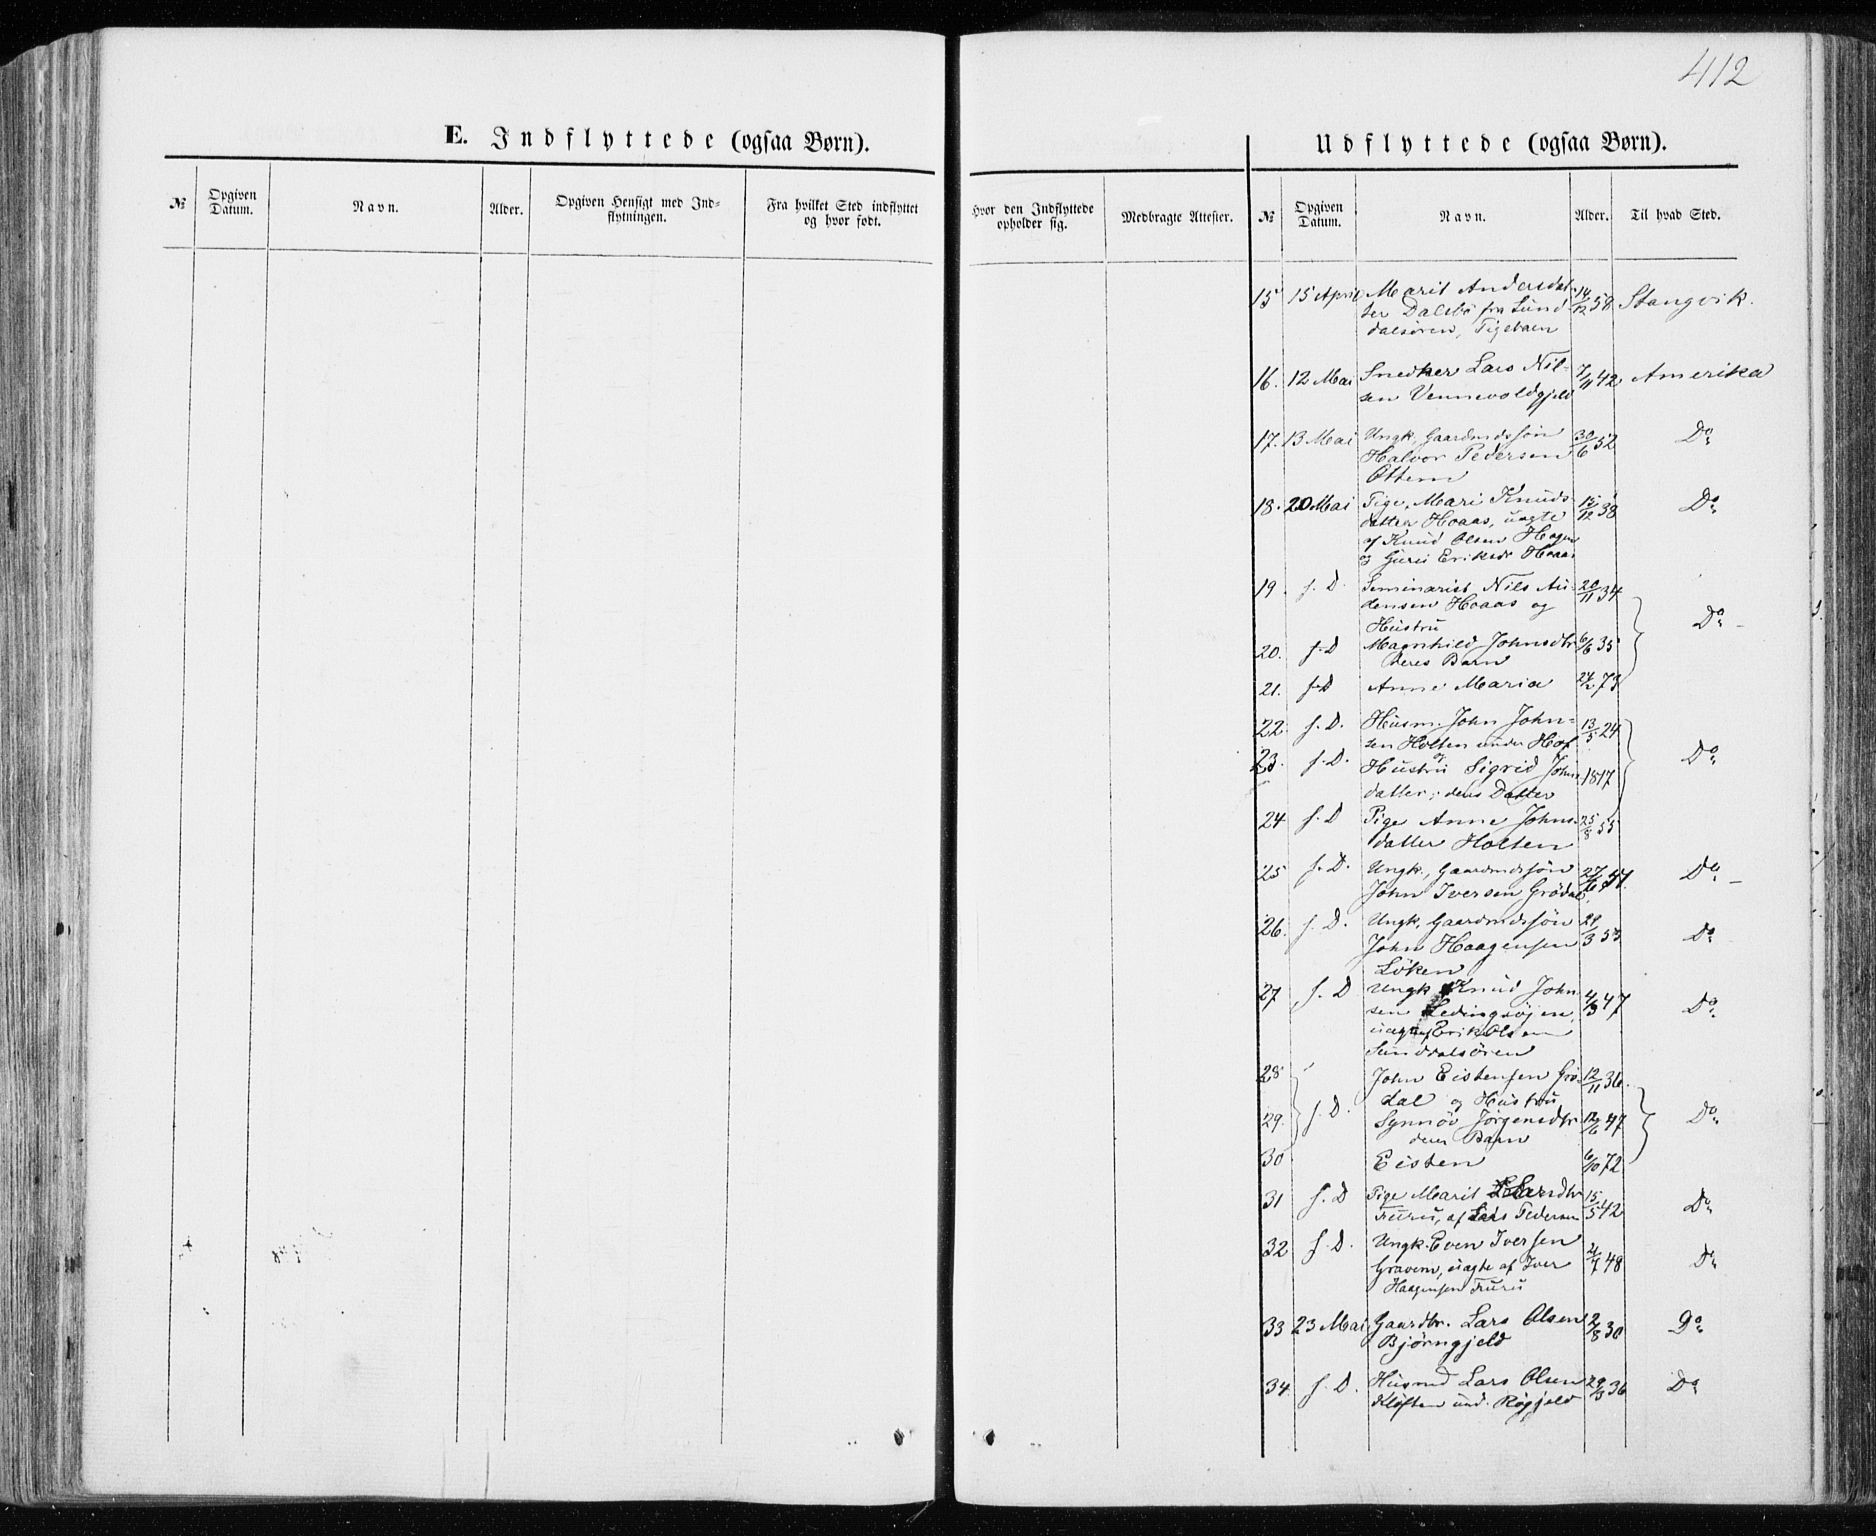 412
E. Indflyttede (ogsaa Børn).
Udflyttede (ogsaa Børn).
№ Opgiven Datum. Navn. Alder. Opgiven Hensigt med Indflytningen. Fra hvilket Sted indflyttet og hvor født. Hvor den Indflyttede opholder sig. Medbragte Attester. № Opgiven Datum. Navn. Alder. Til hvad Sted.
15 15 April Marit Andersdat- 14/12 58 Stangvik.
ter Dalsbö fra Sund
dalsören, Pigebarn
16. 12 Mai Snedker Lars Nil- 7/11 42 Amerika
sen Vennevoldgjeld
17. 13 Mai Ungk, Gaardmdssön 30/6 52 Do
Halvor Pedersen
Ottem
18. 20 Mai Pige, Mari Knuds- 15/12 38 Do
datter Hoaas, uægte
af Knud Olsen Hagen
og Guru Eriksdr Hoaas
19. s. D. Seminarist Nils Au- 20/11 34
densen Hoaas og Do
Hustru
20. s. D Magnhild Johnsdtr 6/6 35
deres Barn
21. s. D Anne Maria 24/2 73
22. s. D. Husm. John John- 13/5 24
sen Holten under Hof
23. s. D. og Hustru Sigrid Johns- 1817 Do
datter; deres Datter
24 s. D Pige Anne Johns- 25/8 55
datter Holten
25 s. D. Ungk, Gaardmdssön Do
John Iversen Grödal
26. s. D. Ungk, Gaardmdssön 29/3 53 Do
John Haagensen
Löken
27 s. D Ungk Knud John 4/3 47 Do
sen Ledingsøjen,
uægte af Erik Olsen
Sunddalsören
28 John Eistensen Grö- 12/11 36
dal og Hustru
29. s. D. Synnöv Jørgensdtr 12/6 47 Do
deres Barn
30 Eisten 6/10 72
31 s. D Pige Marit Larsdtr 15/5 42 Do
Furu, af Lars Pedersen
32 s. D. Ungk. Even Iversen 21/7 48 Do
Gravem, uægte af Iver
Haagensen Furu
33 23 Mai Gaardbr. Lars Olsen 2/8 30 Do
Bjørngjeld
34 s. D. Husmd Lars Olsen 29/3 36 Do
Kløften und. Røgjeld